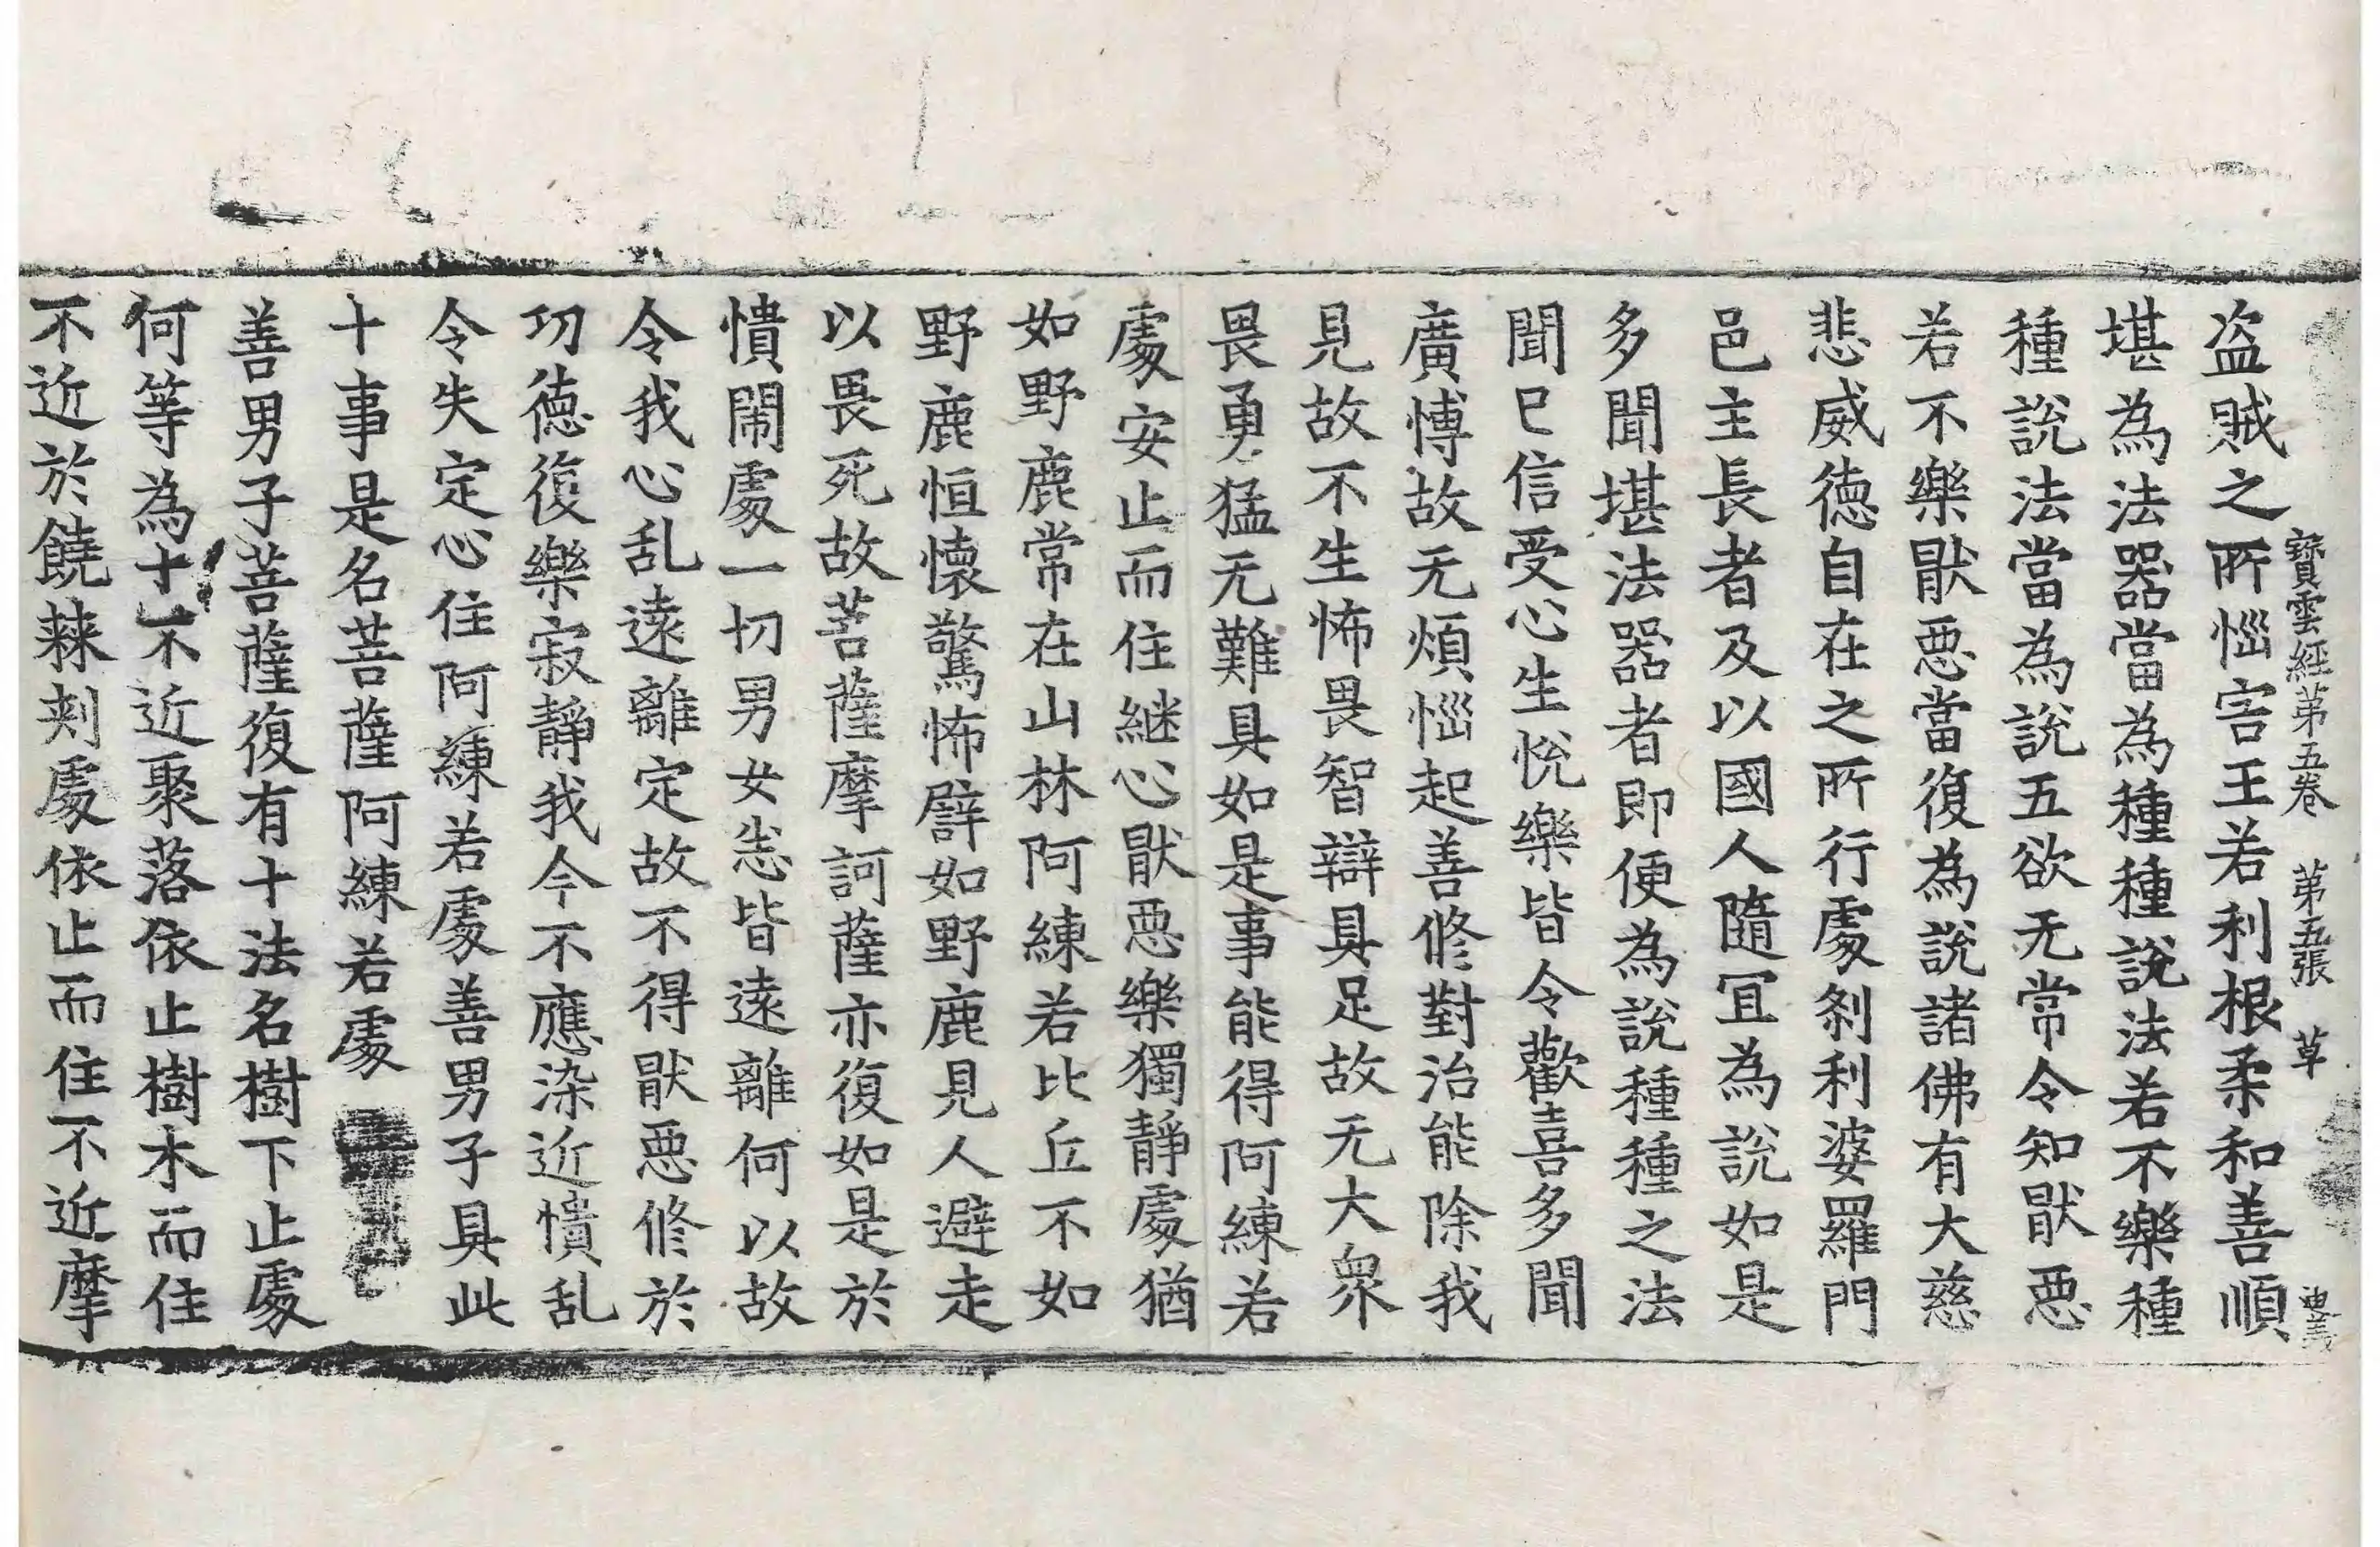 寶雲經第五卷　第五張　草
盗賊之所惱害王若利根柔和善順
堪為法器當為種種說法若不樂種
種說法當為說五欲无常令知猒惡
若不樂猒惡當復為說諸佛有大慈
悲威德自在之所行處刹利婆羅門
邑主長者及以國人隨冝為說如是
多聞堪法器者即便為說種種之法
聞已信受心生悅樂皆令歡喜多聞
廣博故无煩惱起善修對治能除我
見故不生怖畏智辯具足故无大衆
畏勇猛无難具如是事能得阿練若
處安止而住継心猒惡樂獨靜處猶
如野鹿常在山林阿練若比丘不如
野鹿恒懷驚怖譬如野鹿見人避走
以畏死故菩薩摩訶薩亦復如是於
憒閙處一切男女恙皆遠離何以故
令我心乱遠離定故不得猒惡修於
功德復樂寂靜我今不應染近憒乱
令失定心住阿練若處善男子具此
十事是名菩薩阿練若處
善男子菩薩復有十法名樹下止處
何等為十不近聚落依止樹木而住
不近於饒棘刾處依止而住不近摩